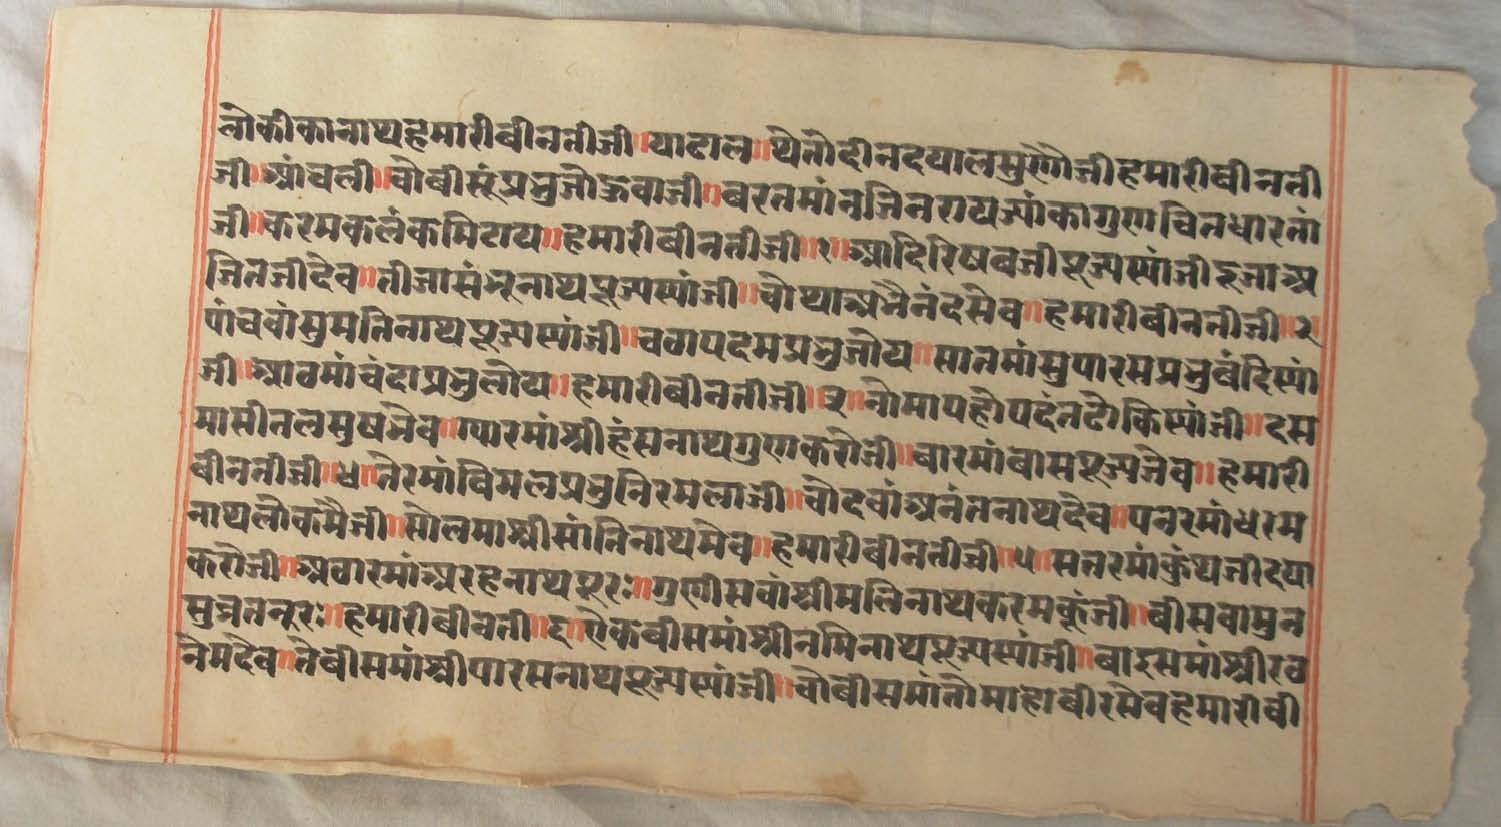 लोकीकानाथहमारीबीनतीजी॥याटाल॥थेतोदीनदयालसुणौजीहमारीबीनती
जी॥आंचली॥चोबीसूंप्रभुजोऊवाजी॥बरतमांनजिनरायज्यांकागुणचितधारतां
जी॥करमकलंकमिटाय॥हमारीबीनतीजी॥१॥आदिरिषबजीपूज्यस्यांजीदूजाअ
जितजीदेव॥तीजासंभूनाथपूज्यस्यांजी॥चोथाअभैनंदसेव॥हमारीबीनतीजी॥२
पांचवांसुमतिनाथपूज्यस्यांजी॥चठापदमप्रभुजोय॥सातमांसुपारसप्रभुबंदिस्यां
जी॥आठमांचंदाप्रभुलोय॥हमारीबीनतीजी॥३॥नोमापहोपदंतढोकिस्यांजी॥दस
मासीतलसुषभेव॥ग्यारमांश्रीहंसनाथगुणकरोजी॥बारमांबासपूज्यजेव॥हमारी
बीनतीजी॥४॥तेरमांविमलप्रभुनिरमलाजी॥चोदवांअनंतनाथदेव॥पनरमांधरम
नाथलोकमैजी॥सोलमाश्रीसांतिनाथमेव॥हमारीबीनतीजी॥५॥सतरमांकुंथजीदया
करोजी॥अठारमांअरहनाथपूर॥गुणीसवांश्रीमलिनाथकरमकूंजी॥बीसवामुन
सुब्रतनूर॥हमारीबीनती॥६॥ऐकबीसमांश्रीनमिनाथपूज्यस्यांजी॥बाईसमांश्रीरव
नेमदेव॥तेबीसमांश्रीपारसनाथपूज्यस्यांजी॥चोबीसमांतोमाहाबीरसेवहमारीबी